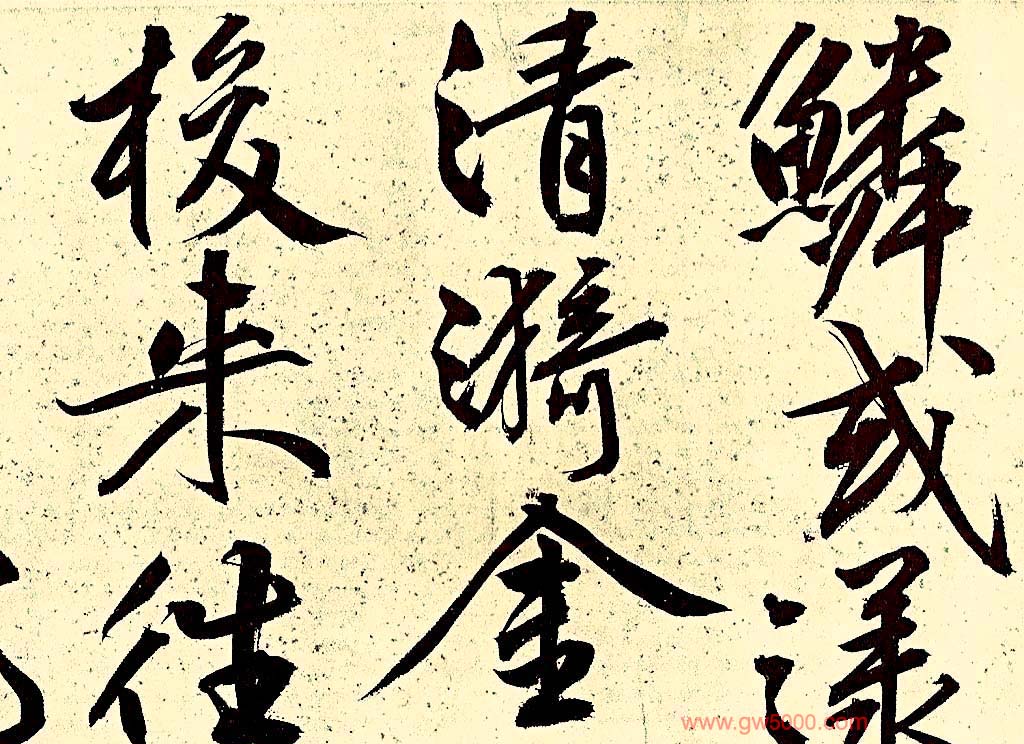 鳞或漾
清漪金
梭来往
www.gw5000.com